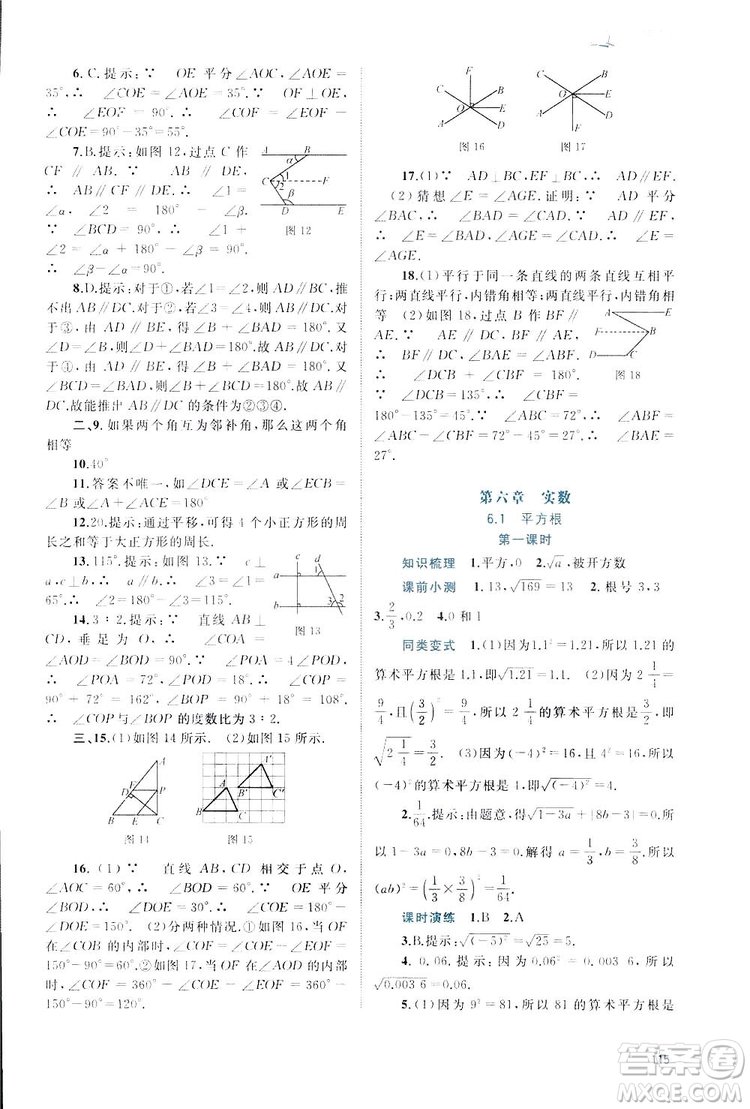 6.C.提示:∵ OE平分∠AOC,∠AOE=
35°,∴ ∠COE=∠AOE=35°.∵ OF⊥OE,
∴ ∠EOF=90°.∴ ∠COF=∠EOF-
∠COE=90°-35°=55°.
7.B.提示:如图12,过点C作
CF∥AB.∵ AB∥DE,∴
AB∥CF∥DE.∴ ∠1=
∠α,∠2=180°-∠β.∵
∠BCD=90°,∴ ∠1+∠2
=∠α+180°-∠β=90°.
∴ ∠β-∠α=90°.
图12
8.D.提示:对于①,若∠1=∠2,则AD∥BE,推
不出AB∥DC.对于②,若∠3=∠4,则AB∥DC.对
于③,由AD∥BE,得∠B+∠BAD=180°.又
∠D=∠B,所以∠D+∠BAD=180°.故AB∥DC.对
于④,由AD∥BE,得∠B+∠BAD=180°.又
∠BAD=∠BCD,所以∠B+∠BCD=180°.故AB∥
DC.故能推出AB∥DC的条件为②③④.
二、9.如果两个角互为邻补角,那么这两个角
相等
10.40°
11.答案不唯一,如∠DCE=∠A或∠ECB=
∠B或∠A+∠ACE=180°
12.20.提示:通过平移,可得4个小正方形的周
长之和等于大正方形的周长.
13.115°.提示:如图13.∵ a⊥
c,b⊥c,∴ a∥b.∴ ∠1=∠2=
65°.∴ ∠3=180°-∠2=115°.
图13
14.3∶2.提示:∵ 直线AB⊥
CD,垂足为O,∴ ∠COA=
∠AOD=∠BOD=90°.∵ ∠POD=∠POA+
∠AOD=162°,∴ ∠POA=72°.∴ ∠BOP=
90°+72°=162°,∠COP=180°-72°=108°.
∴ ∠COP与∠BOP的度数比为3∶2.
三、15.(1)如图14所示. (2)如图15所示.
A
D P
B E C
图14
A B C
图15
16.(1)∵ 直线AB,CD相交于点O,
∠AOC=60°,∴ ∠BOD=∠AOC=60°.∵ OE平
分∠BOD,∴ ∠DOE=30°.∴ ∠COE=180°-
∠DOE=150°. (2)分两种情况.①如图16,当OF在
∠COB的内部时,∵ ∠EOF=90°,∴ ∠COF=
150°-90°=60°.②如图17,当OF在∠AOD的内部
时,∠COF=360°-∠COE-∠EOF=360°-
150°-90°=120°.
F
C B
O E
A D
图16
C B
O E
A D
F
图17
17.(1)∵ AD⊥BC,EF⊥BC,∴ AD∥EF.
(2)猜想∠E=∠AGE.证明:∵ AD平分
∠BAC,∴ ∠BAD=∠CAD.∵ AD∥EF,
∴ ∠E=∠CAD,∠AGE=∠BAD.∴ ∠E=
∠AGE.
18.(1)平行于同一条直线的两条直线互相平
行;两直线平行,内错角相等;两直线平行,内错角相
等 (2)如图18,过点B作BF∥
AE.∵ AE∥CD,∴ BF∥
CD.∴ ∠DCB+∠CBF=
180°.∵ ∠DCB=
135°,∴ ∠CBF=
图18
180°-135°=45°.∵ ∠ABC=72°,∴ ∠ABF=
∠ABC-∠CBF=27°.∴ ∠BAE=∠ABF=
27°.
第六章 实数
6.1 平方根
第一课时
知识梳理 1.平方,0 2.√a,被开方数
课前小测 1.13,√169=13 2.根号3,3
3.2/3,0.2 4.0和1
同类变式 1.(1)因为1.1²=1.21,所以1.21的
算术平方根是1.1,即√1.21=1.1. (2)因为2 1/4=
9/4,且(3/2)²=9/4,所以2 1/4的算术平方根是3/2,即
√(2 1/4)=3/2. (3)因为(-4)²=16,4²=16,所以
(-4)²的算术平方根是4,即√(-4)²=4.
2.1/64.提示:由题意,得√(1-3a)+|8b-3|=0.
所以1-3a=0,8b-3=0.所以a=1/3,b=3/8.所以
(ab)²=(1/3×3/8)²=1/64.
课时演练 1.B 2.A
3.B.提示:√(-5)²=√25=5.
4.0.06.提示:因为0.06²=0.003 6,所以
√0.003 6=0.06.
5.(1)因为9²=81,所以81的算术平方根是
115
答案卷